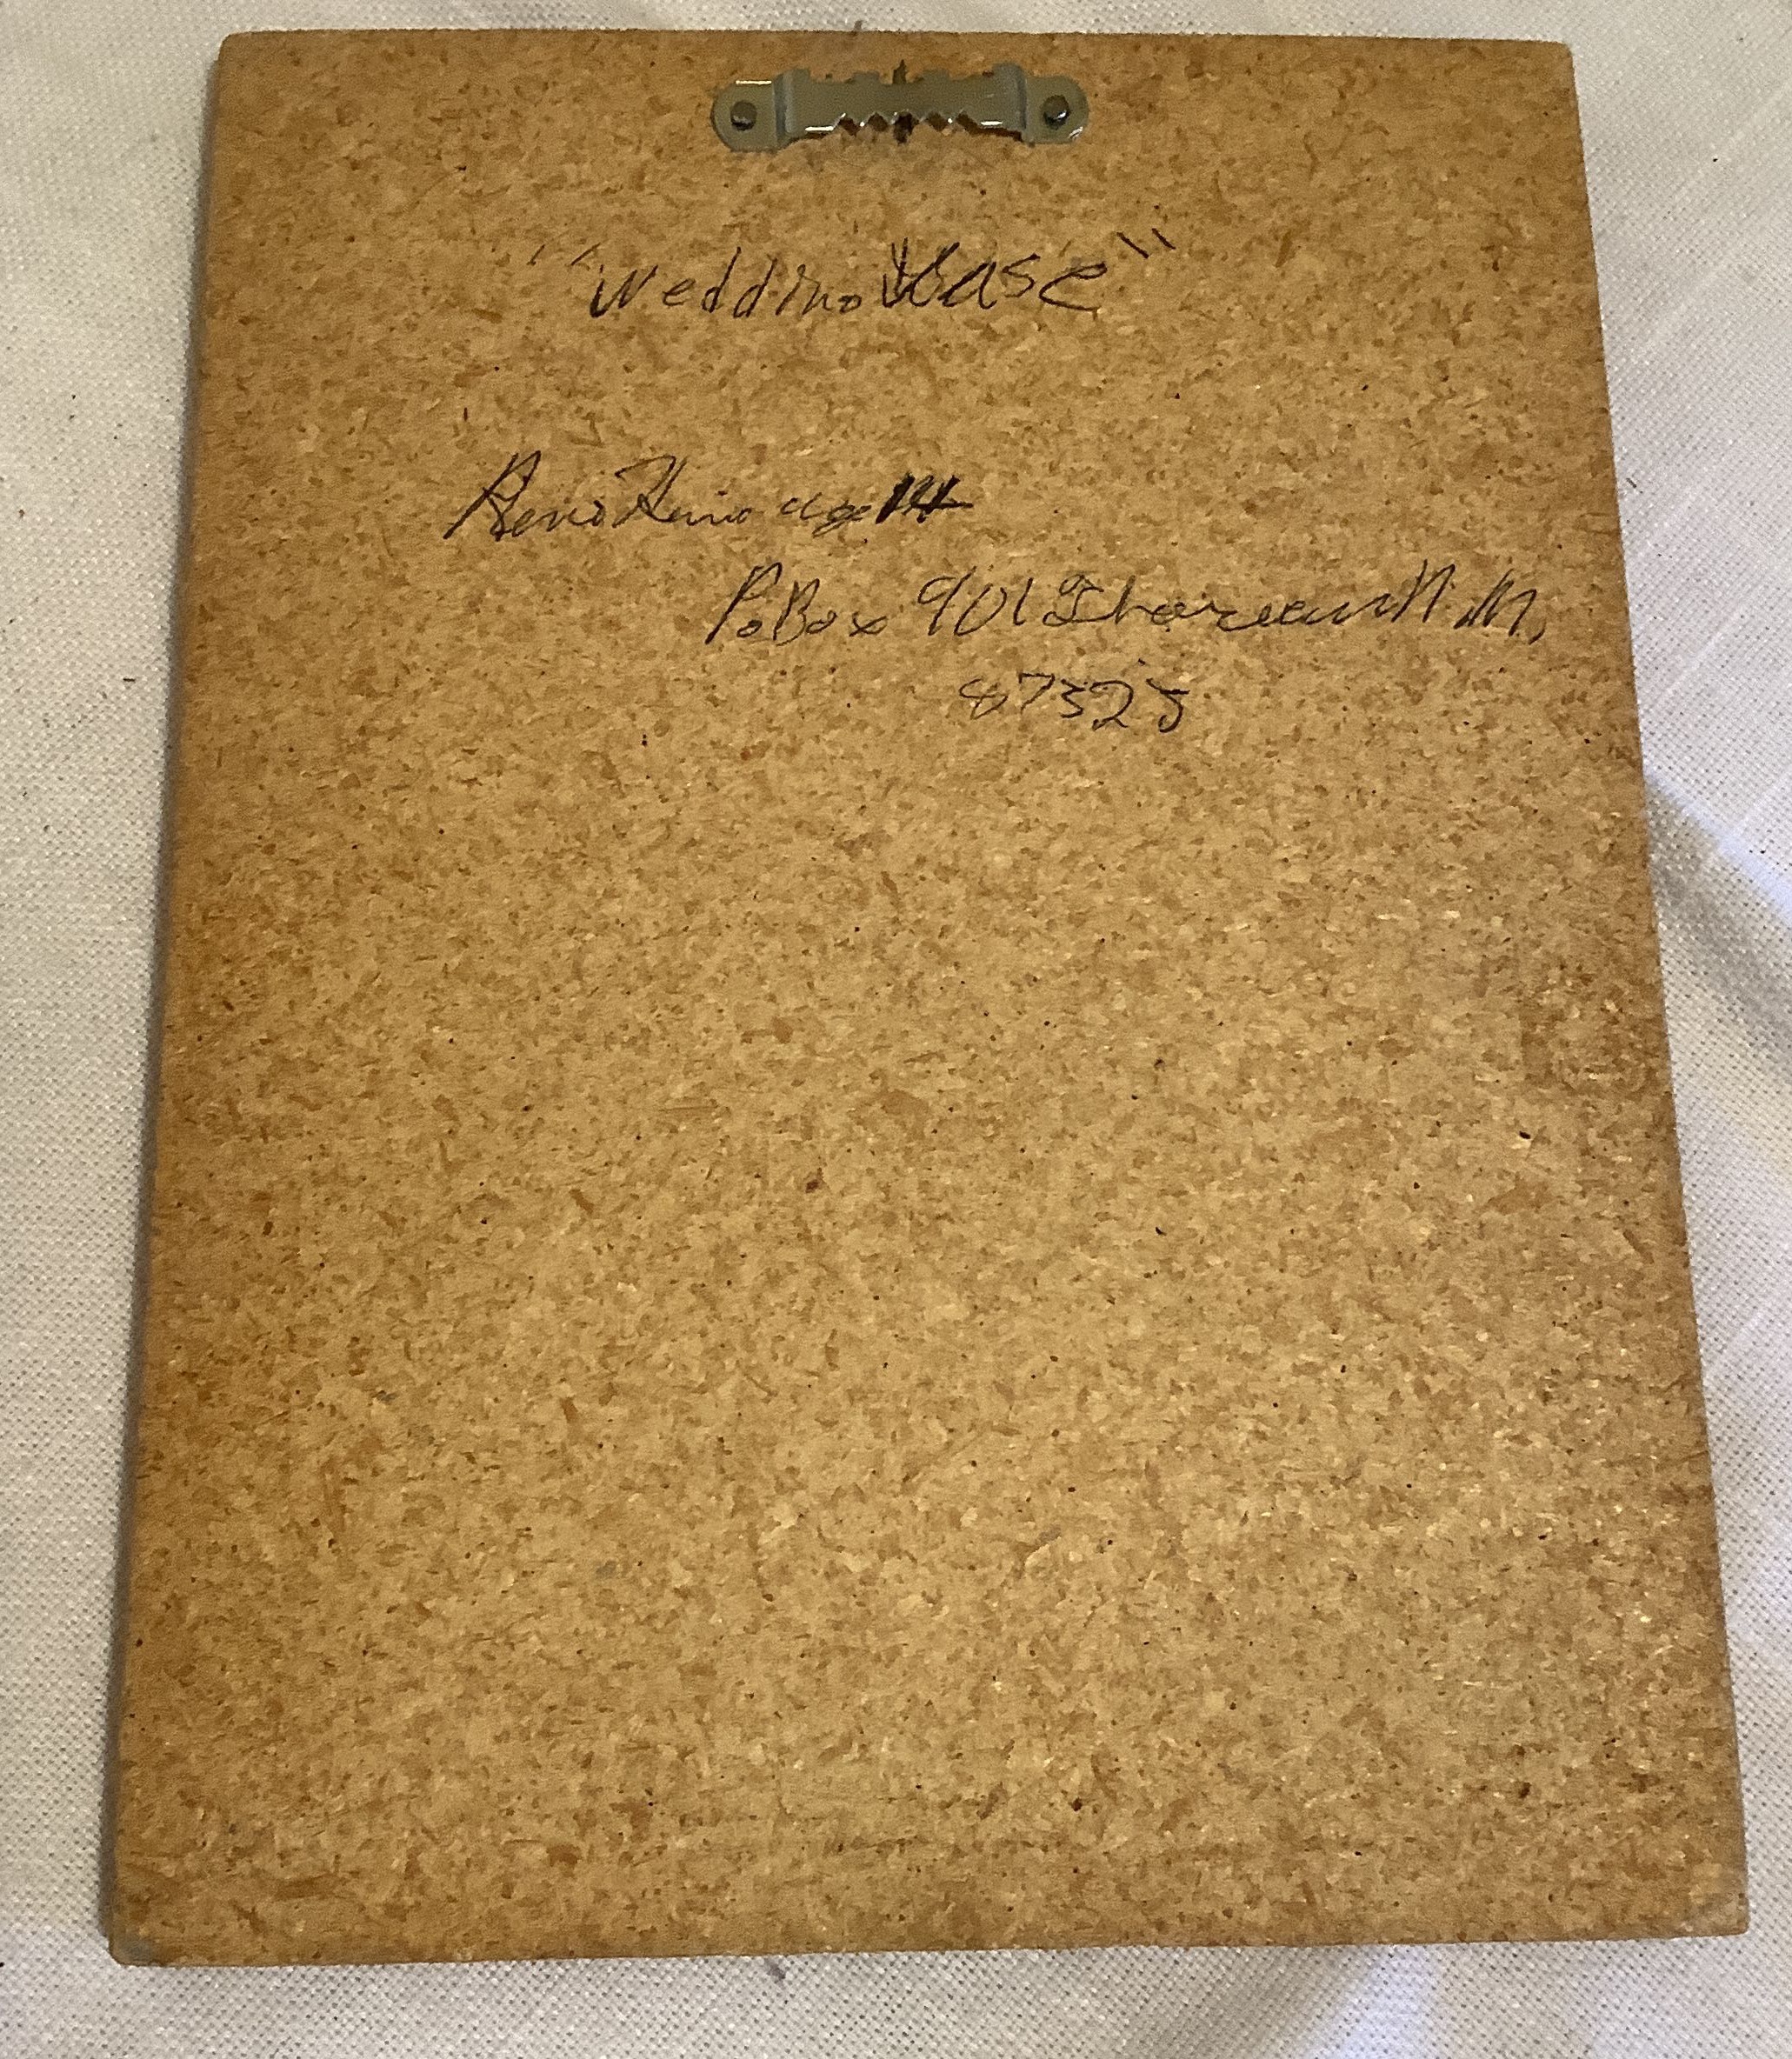 "Wedding Vase"
Reno King age 14
P.o Box 901 Thoreau N.M.
87323